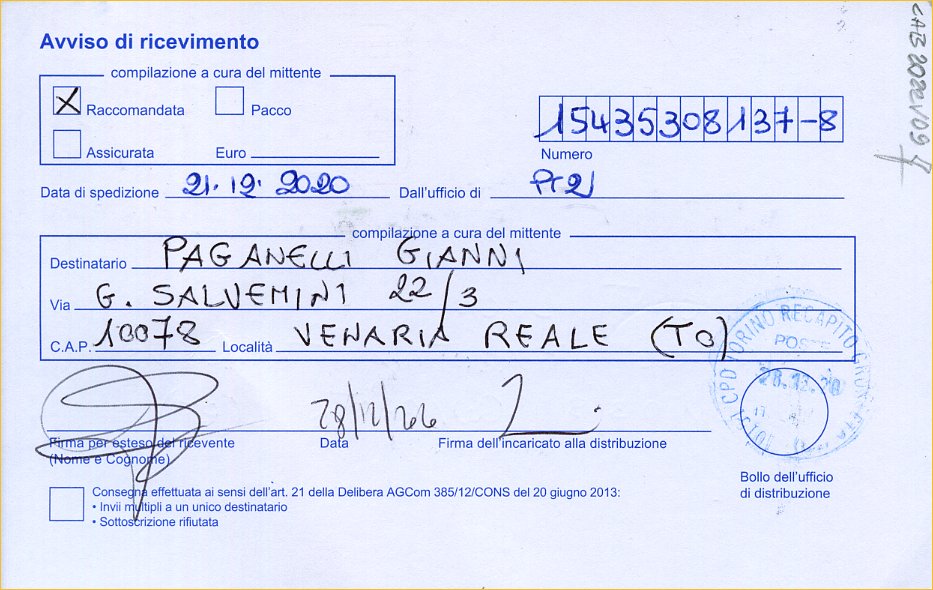 Avviso di ricevimento
compilazione a cura del mittente
X Raccomandata Pacco
Assicurata Euro
15435308137-8
Numero
Data di spedizione 21.12.2020 Dall'ufficio di
compilazione a cura del mittente
Destinatario PAGANELLI GIANNI
Via G. SALVEMINI 22/3
C.A.P. 10078 Località VENARIA REALE (TO)
28/12/
Firma per esteso del ricevente
(Nome e Cognome)
Data
Firma dell'incaricato alla distribuzione
TORINO RECAPITO
POSTE
28.12.20
Bollo dell'ufficio
di distribuzione
Consegna effettuata ai sensi dell'art. 21 della Delibera AGCom 385/12/CONS del 20 giugno 2013:
• Invii multipli a un unico destinatario
• Sottoscrizione rifiutata